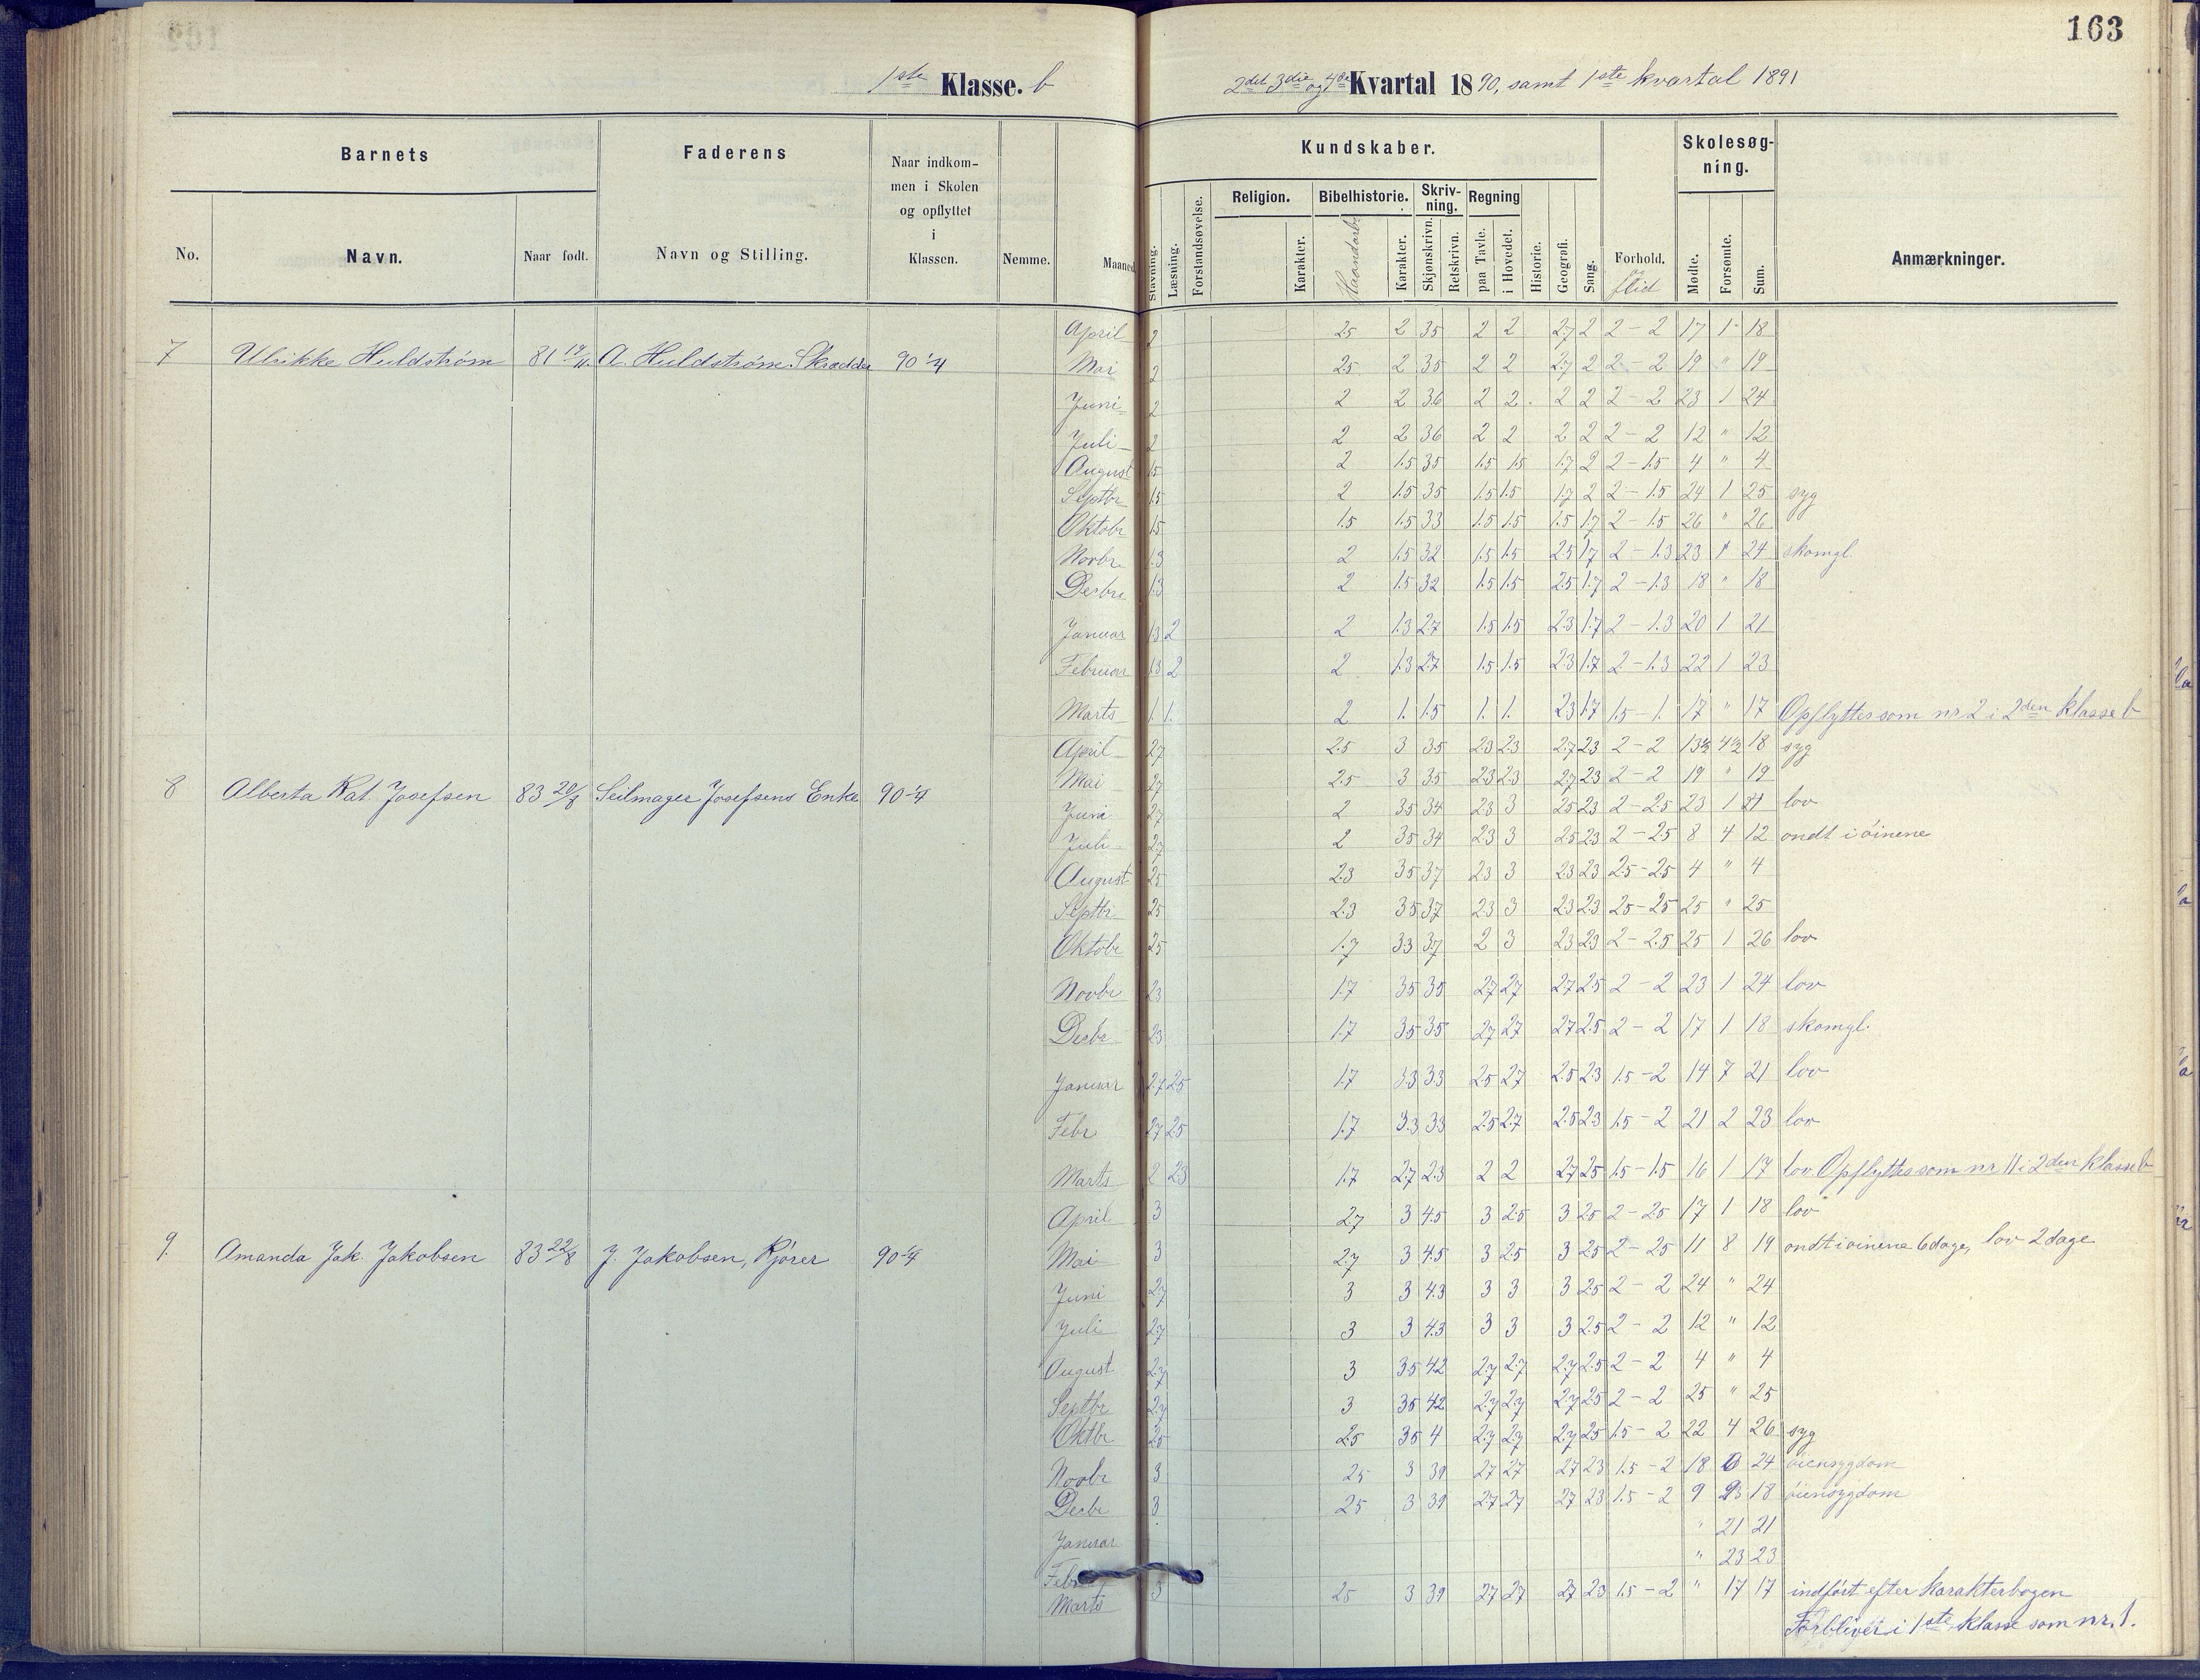 163
1ste Klasse. b
2det 3die og 4de Kvartal 1890, samt 1ste kvartal 1891
Barnets Faderens Naar indkommen i Skolen og opflyttet i Klassen. Nemme. Maaned Kundskaber. Forhold. og flid Skolesøgning. Anmærkninger.
No. Navn. Naar født. Navn og Stilling. Stavning. Læsning. Forstandsøvelse. Religion. Karakter. Bibelhistorie. Haandarb. Karakter. Skrivning. Skjønskrivn. Retskrivn. Regning paa Tavle. i Hovedet. Historie. Geografi. Sang. Mødte. Forsømte. Sum.
7 Ulrikke Huldstrøm 81 14/11 A. Huldstrøm. Skrædder 90 1/4
April 2 25 2 35 2 2 27 2 2-2 17 1 18
Mai 2 25 2 35 2 2 27 2 2-2 19 " 19
Juni 2 2 2 36 2 2 2 2 2-2 23 1 24
Juli 2 2 2 36 2 2 2 2 2-2 12 " 12
August 15 2 1.5 35 1.5 1.5 1.7 2 2-1.5 4 " 4
Septbr 15 2 1.5 35 1.5 1.5 1.7 2 2-1.5 24 1 25 syg
Oktobr 15 1.5 1.5 33 1.5 1.5 1.5 1.7 2-1.5 26 " 26
Novbr 1.3 2 1.5 32 1.5 1.5 25 1.7 2-1.3 23 1 24 skomgl.
Decbr 1.3 2 1.5 32 1.5 1.5 2.5 1.7 2-1.3 18 " 18
Januar 13 2 2 1.3 27 1.5 1.5 23 1.7 2-1.3 20 1 21
Februar 13 2 2 1.3 27 1.5 1.5 23 1.7 2-1.3 22 1 23
Marts 1. 1. 2 1. 1.5 1. 1. 23 1.7 1.5-1. 17 " 17 Opflyttes som nr 2 i 2den klasse b
8 Alberta Kat. Josefsen 83 20/8 Seilmager Josefsens Enke 90 1/4
April 27 2.5 3 3.5 23 2.3 2.7 23 2-2 13½ 4½ 18 syg
Mai 27 2.5 3 35 23 23 27 23 2-2 19 " 19
Juni 27 2 35 34 23 3 25 23 2-25 23 1 24 lov
Juli 27 2 35 34 23 3 25 23 2-25 8 4 12 ondt i øinene
August 25 23 35 37 23 3 23 23 25-25 4 " 4
Septbr 25 2.3 35 37 23 3 23 23 25-25 25 " 25
Oktobr 25 1.7 33 37 2 3 23 23 2-2.5 25 1 26 lov
Novbr 23 1.7 35 35 27 27 27 25 2-2 23 1 24 lov
Decbr 23 1.7 35 35 27 27 27 25 2-2 17 1 18 skomgl.
Januar 27 25 1.7 33 33 25 27 25 23 1.5-2 14 7 21 lov
Febr 27 25 1.7 33 33 25 27 25 23 1.5-2 21 2 23 lov
Marts 2 23 1.7 27 23 2 2 27 25 1.5-1.5 16 1 17 lov Opflyttes som nr 11 i 2den klasse b
9. Amanda Jak. Jakobsen 83 22/8 J. Jakobsen, Kjører 90 1/4
April 3 27 3 45 3 25 3 25 2-25 17 1 18 lov
Mai 3 27 3 45 3 25 3 25 2-25 11 8 19 ondt i øinene 6 dage, lov 2 dage
Juni 27 3 3 43 3 3 3 25 2-2 24 " 24
Juli 27 3 3 43 3 3 3 25 2-2 12 " 12
August 27 3 35 42 27 27 27 25 2-2 4 " 4
Septbr 27 3 35 42 27 27 27 25 2-2 25 " 25
Oktbr 25 25 35 4 27 27 27 25 1.5-2 22 4 26 syg
Novbr 3 25 3 39 27 27 27 23 1.5-2 18 6 24 øiensygdom
Decbr 3 25 3 39 27 27 27 23 1.5-2 9 18 øiensygdom
Januar " 21 21
Febr " 23 23
Marts 3 25 3 39 27 27 27 23 1.5-2 " 17 17 indført efter karakterbogen
Forbliver i 1ste klasse som nr. 1.